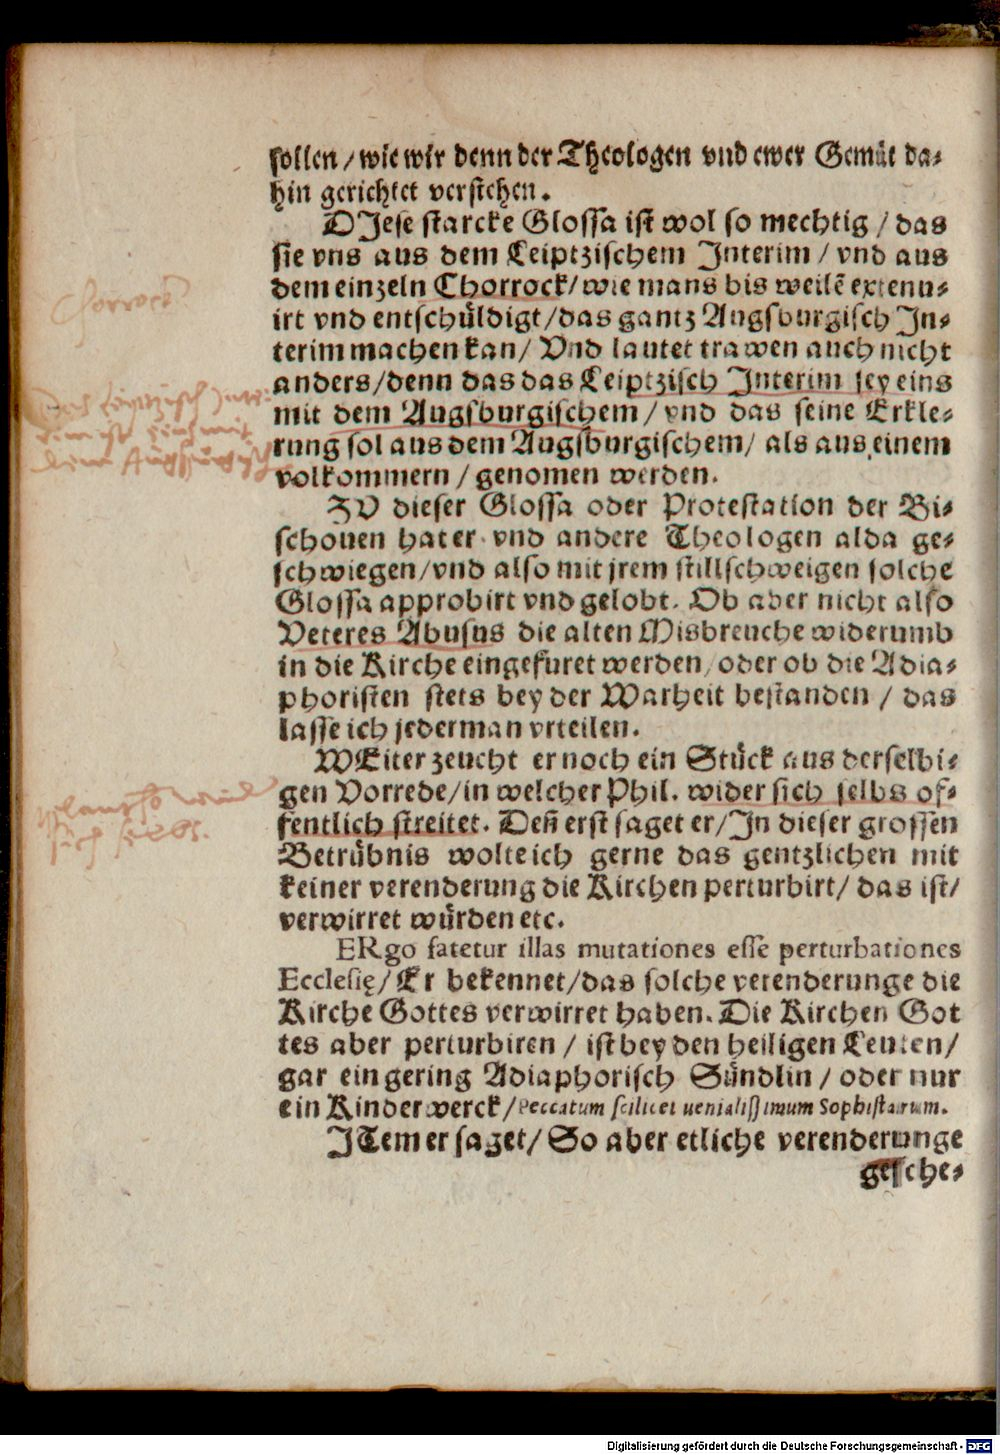 sollen / wie wir denn der Theologen vnd ewer Gemüt da⸗
hin gerichtet verstehen.
DJese starcke Glossa ist wol so mechtig / das
sie vns aus dem Leiptzischem Jnterim / vnd aus
dem einzeln Chorrock/ wie mans bis weilē extenu⸗
irt vnd entschüldigt/das gantz Augsburgisch Jn⸗
terim machen kan/ Vnd lautet trawen auch nicht
anders/denn das das Leiptzisch Jnterim sey eins
mit dem Augsburgischem / vnd das seine Erkle⸗
rung sol aus dem Augsburgischem/ als aus einem
volkommern / genomen werden.
ZV dieser Glossa oder Protestation der Bi⸗
schouen hat er vnd andere Theologen alda ge⸗
schwiegen/vnd also mit jrem stillschweigen solche
Glossa approbirt vnd gelobt. Ob aber nicht also
Veteres Abusus die alten Misbreuche widerumb
in die Kirche eingefuret werden/oder ob die Adia⸗
phoristen stets bey der Warheit bestanden / das
lasse ich jederman vrteilen.
WEiter zeucht er noch ein Stück aus derselbi⸗
gen Vorrede/in welcher Phil. wider sich selbs of⸗
fentlich streitet. Deñ erst saget er/Jn dieser grossen
Betrübnis wolte ich gerne das gentzlichen mit
keiner verenderung die Kirchen perturbirt/ das ist/
verwirret würden etc.
ERgo fatetur illas mutationes esse perturbationes
Ecclesię/ Er bekennet/das solche verenderunge die
Kirche Gottes verwirret haben. Die Kirchen Got
tes aber perturbiren / ist bey den heiligen Leuten/
gar ein gering Adiaphorisch Sündlin / oder nur
ein Kinderwerck/Peccatum scilicet uenialissimum Sophistarum.
JTem er saget/ So aber etliche verenderunge
gesche⸗
Chorrock
das Leiptzisch Jnte⸗
rim ist eins mit
dem Augspurgisch
wid
sich selbs.
Digitalisierung gefördert durch die Deutsche Forschungsgemeinschaft - DFG